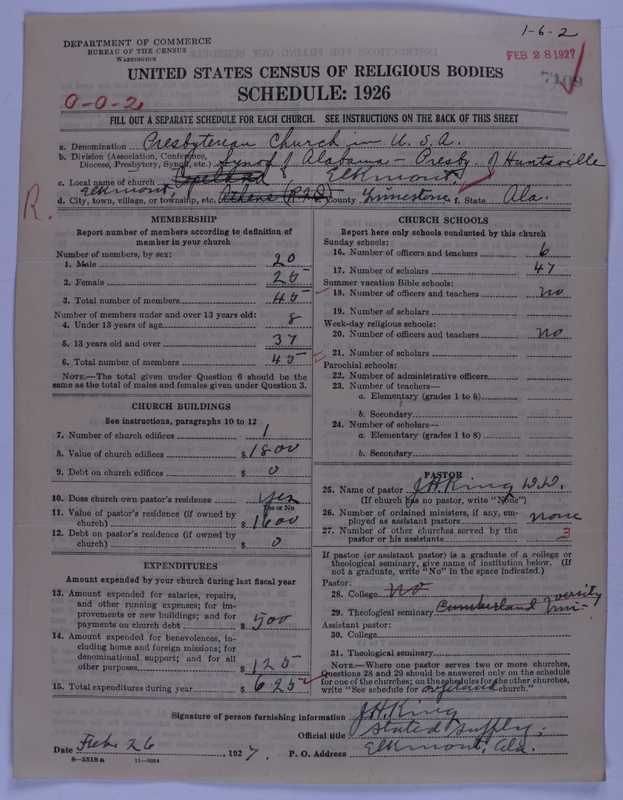 1-6-2
DEPARTMENT OF COMMERCE
BUREAU OF THE CENSUS
WASHINGTON
FEB 28 1927
7109
UNITED STATES CENSUS OF RELIGIOUS BODIES
SCHEDULE: 1926
0-0-2
FILL OUT A SEPARATE SCHEDULE FOR EACH CHURCH. SEE INSTRUCTIONS ON THE BACK OF THIS SHEET
a. Denomination Presbyterian Church in U.S.A.
b. Division (Association, Conference, Diocese, Presbytery, Synod, etc.) Synod of Alabama - Presby. of Huntsville
c. Local name of church Copeland Elkmont
Elkmont,
d. City, town, village, or township, etc. Athens (R.F.D.) County Limestone f. State Ala.
R.
MEMBERSHIP
Report number of members according to definition of member in your church
Number of members, by sex:
1. Male 20
2. Female 25
3. Total number of members 45
Number of members under and over 13 years old:
4. Under 13 years of age 8
5. 13 years old and over 37
6. Total number of members 45
NOTE.—The total given under Question 6 should be the same as the total of males and females given under Question 3.
CHURCH BUILDINGS
See instructions, paragraphs 10 to 12
7. Number of church edifices 1
8. Value of church edifices $1800
9. Debt on church edifices $0
10. Does church own pastor's residence Yes
Yes or No
11. Value of pastor's residence (if owned by church) $1600
12. Debt on pastor's residence (if owned by church) $0
EXPENDITURES
Amount expended by your church during last fiscal year
13. Amount expended for salaries, repairs, and other running expenses; for improvements or new buildings; and for payments on church debt $500
14. Amount expended for benevolences, including home and foreign missions; for denominational support; and for all other purposes $125
15. Total expenditures during year $625
CHURCH SCHOOLS
Report here only schools conducted by this church
Sunday schools:
16. Number of officers and teachers 6
17. Number of scholars 47
Summer vacation Bible schools:
18. Number of officers and teachers no
19. Number of scholars
Week-day religious schools:
20. Number of officers and teachers no
21. Number of scholars
Parochial schools:
22. Number of administrative officers
23. Number of teachers—
a. Elementary (grades 1 to 8)
b. Secondary
24. Number of scholars—
a. Elementary (grades 1 to 8)
b. Secondary
PASTOR
25. Name of pastor J.H. King
(If church has no pastor, write "None")
26. Number of ordained ministers, if any, employed as assistant pastors none
27. Number of other churches served by the pastor or his assistants 3
If pastor (or assistant pastor) is a graduate of a college or theological seminary, give name of institution below. (If not a graduate, write "No" in the space indicated.)
Pastor:
28. College No
29. Theological seminary Cumberland University
Assistant pastor:
30. College
31. Theological seminary
NOTE.—Where one pastor serves two or more churches, Questions 28 and 29 should be answered only on the schedule for one of the churches; on the schedules for the other churches, write "See schedule for Copeland church."
Signature of person furnishing information J.H. King
Official title Stated Supply,
Date Feb. 26, 1927. P. O. Address Elkmont, Ala.
8—5518a 11—9024